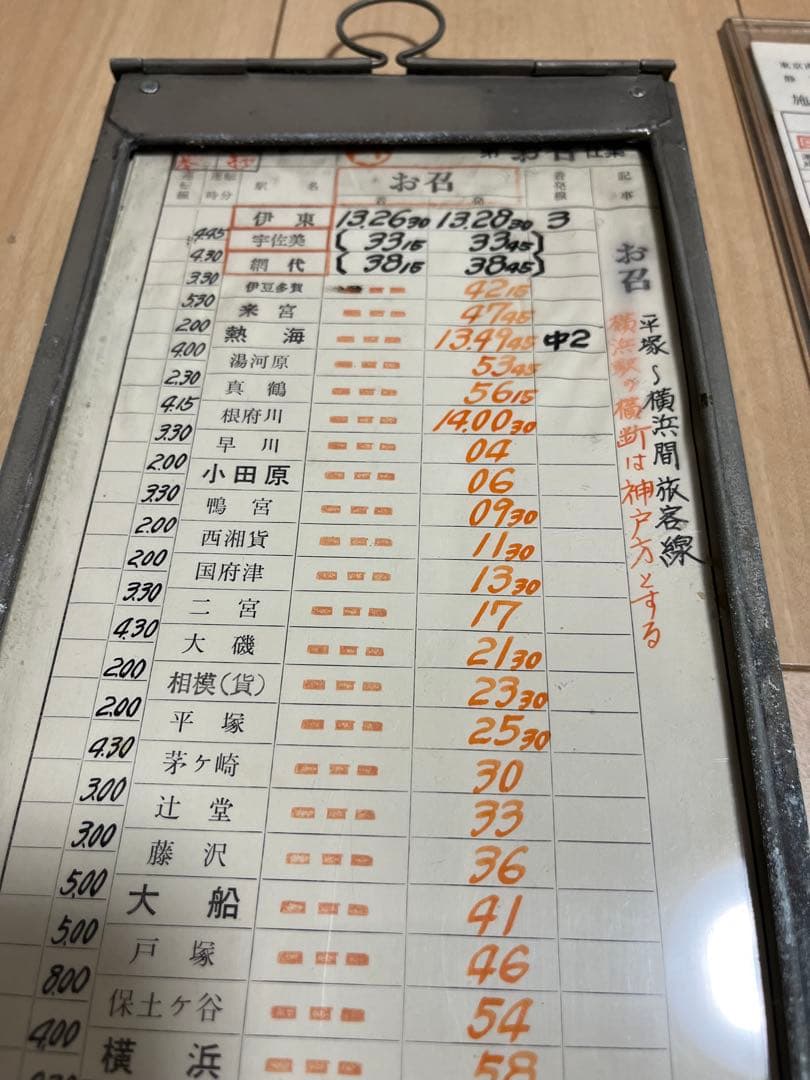 お召
運転時分 駅名 お召 着 発 着発線 記事
伊東 13.26 30 13.28 30 3
4.45 宇佐美 ( 33 15 33 45 )
4.30 網代 ( 38 15 38 45 )
3.30 伊豆多賀 42 15
5.30 来宮 47 45
2.00 熱海 13.49 45 中2
4.00 湯河原 53 45
2.30 真鶴 56 15
4.15 根府川 14.00 30
3.30 早川 04
2.00 小田原 06
3.30 鴨宮 09 30
2.00 西湘貨 11 30
2.00 国府津 13 30
3.30 二宮 17
4.30 大磯 21 30
2.00 相模(貨) 23 30
2.00 平塚 25 30
4.30 茅ヶ崎 30
3.00 辻堂 33
3.00 藤沢 36
5.00 大船 41
5.00 戸塚 46
8.00 保土ヶ谷 54
4.00 横浜 58
お召
平塚~横浜間旅客線
横浜駅の横断は神戸方とする
東京
静
施